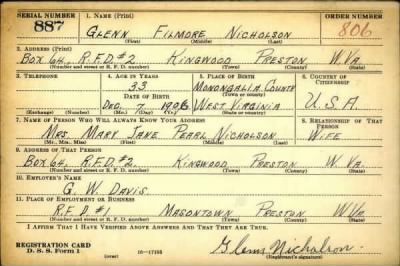 SERIAL NUMBER 1. NAME (Print) ORDER NUMBER
887 GLENN FILMORE NICHOLSON 806
(First) (Middle) (Last)
2. ADDRESS (Print)
BOX 64, R.F.D. #2 KINGWOOD PRESTON W.VA.
(Number and street or R. F. D. number) (Town) (County) (State)
3. TELEPHONE 4. AGE IN YEARS 5. PLACE OF BIRTH 6. COUNTRY OF CITIZENSHIP
33 MONONGALIA COUNTY
DATE OF BIRTH (Town or county)
DEC. 7 1906 WEST VIRGINIA U.S.A.
(Exchange) (Number) (Mo.) (Day) (Yr.) (State or country)
7. NAME OF PERSON WHO WILL ALWAYS KNOW YOUR ADDRESS 8. RELATIONSHIP OF THAT PERSON
MRS. MARY JANE PEARL NICHOLSON WIFE
(Mr., Mrs., Miss) (First) (Middle) (Last)
9. ADDRESS OF THAT PERSON
BOX 64, R.F.D. #2. KINGWOOD PRESTON W.VA.
(Number and street or R. F. D. number) (Town) (County) (State)
10. EMPLOYER'S NAME
G. W. DAVIS.
11. PLACE OF EMPLOYMENT OR BUSINESS
R.F.D #1 MASONTOWN PRESTON W.VA.
(Number and street or R. F. D. number) (Town) (County) (State)
I AFFIRM THAT I HAVE VERIFIED ABOVE ANSWERS AND THAT THEY ARE TRUE.
REGISTRATION CARD
D. S. S. Form 1 (over) 16—17105 Glenn Nicholson
(Registrant's signature)